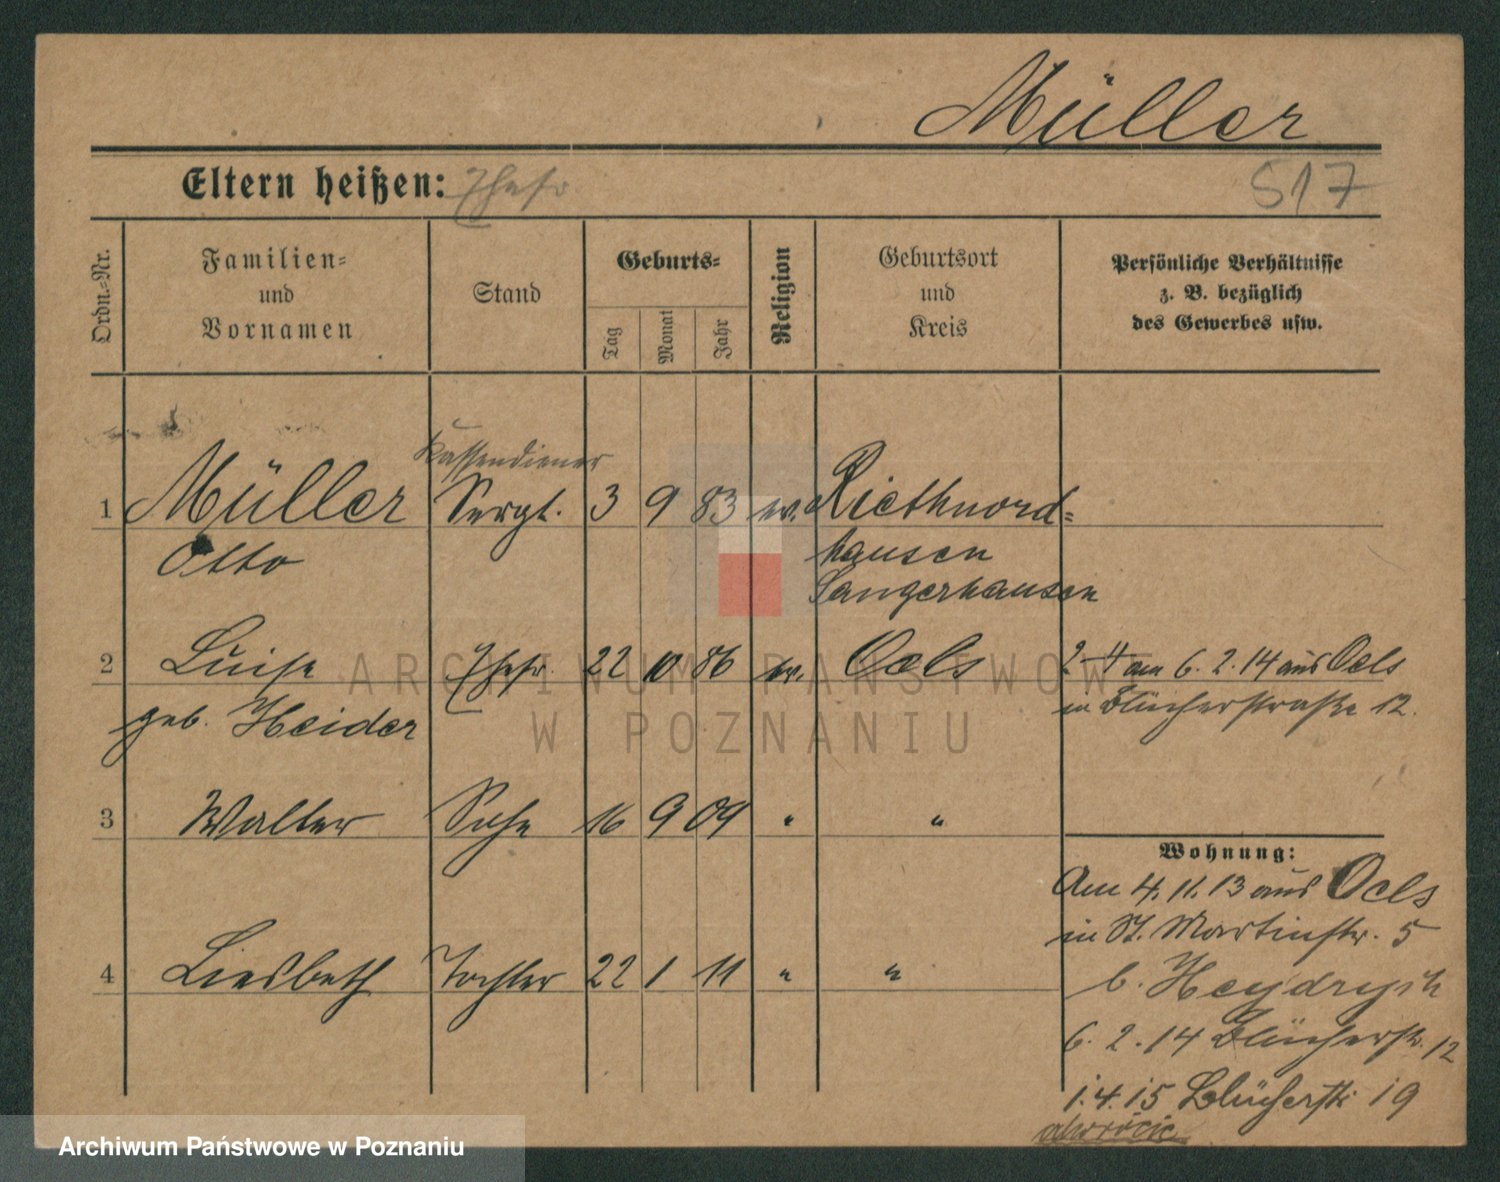 Müller
Eltern heißen: Ehefr.
517
Ordn.-Nr.
Familien-
und
Vornamen
Stand
Geburts-
Tag
Monat
Jahr
Religion
Geburtsort
und
Kreis
Persönliche Verhältnisse
z. B. bezüglich
des Gewerbes usw.
Kassendiener
1 Müller Sergt. 3 9 83 ev. Riethnord-
Otto hausen
Sangerhausen
2 Luise Ehefr. 22 10 86 ev. Oels 2-4 am 6.2.14 aus Oels
geb. Heider in Blücherstraße 12.
3 Walter Sohn 16 9 09 " "
Wohnung:
Am 4.11.13 aus Oels
in St. Martinstr. 5
4 Liesbeth Tochter 22 1 11 " "
b. Heydrych
6.2.14 Blücherstr. 12
1.4.15 Blücherstr. 19
odwrócić
ARCHIWUM PAŃSTWOWE
W POZNANIU
Archiwum Państwowe w Poznaniu